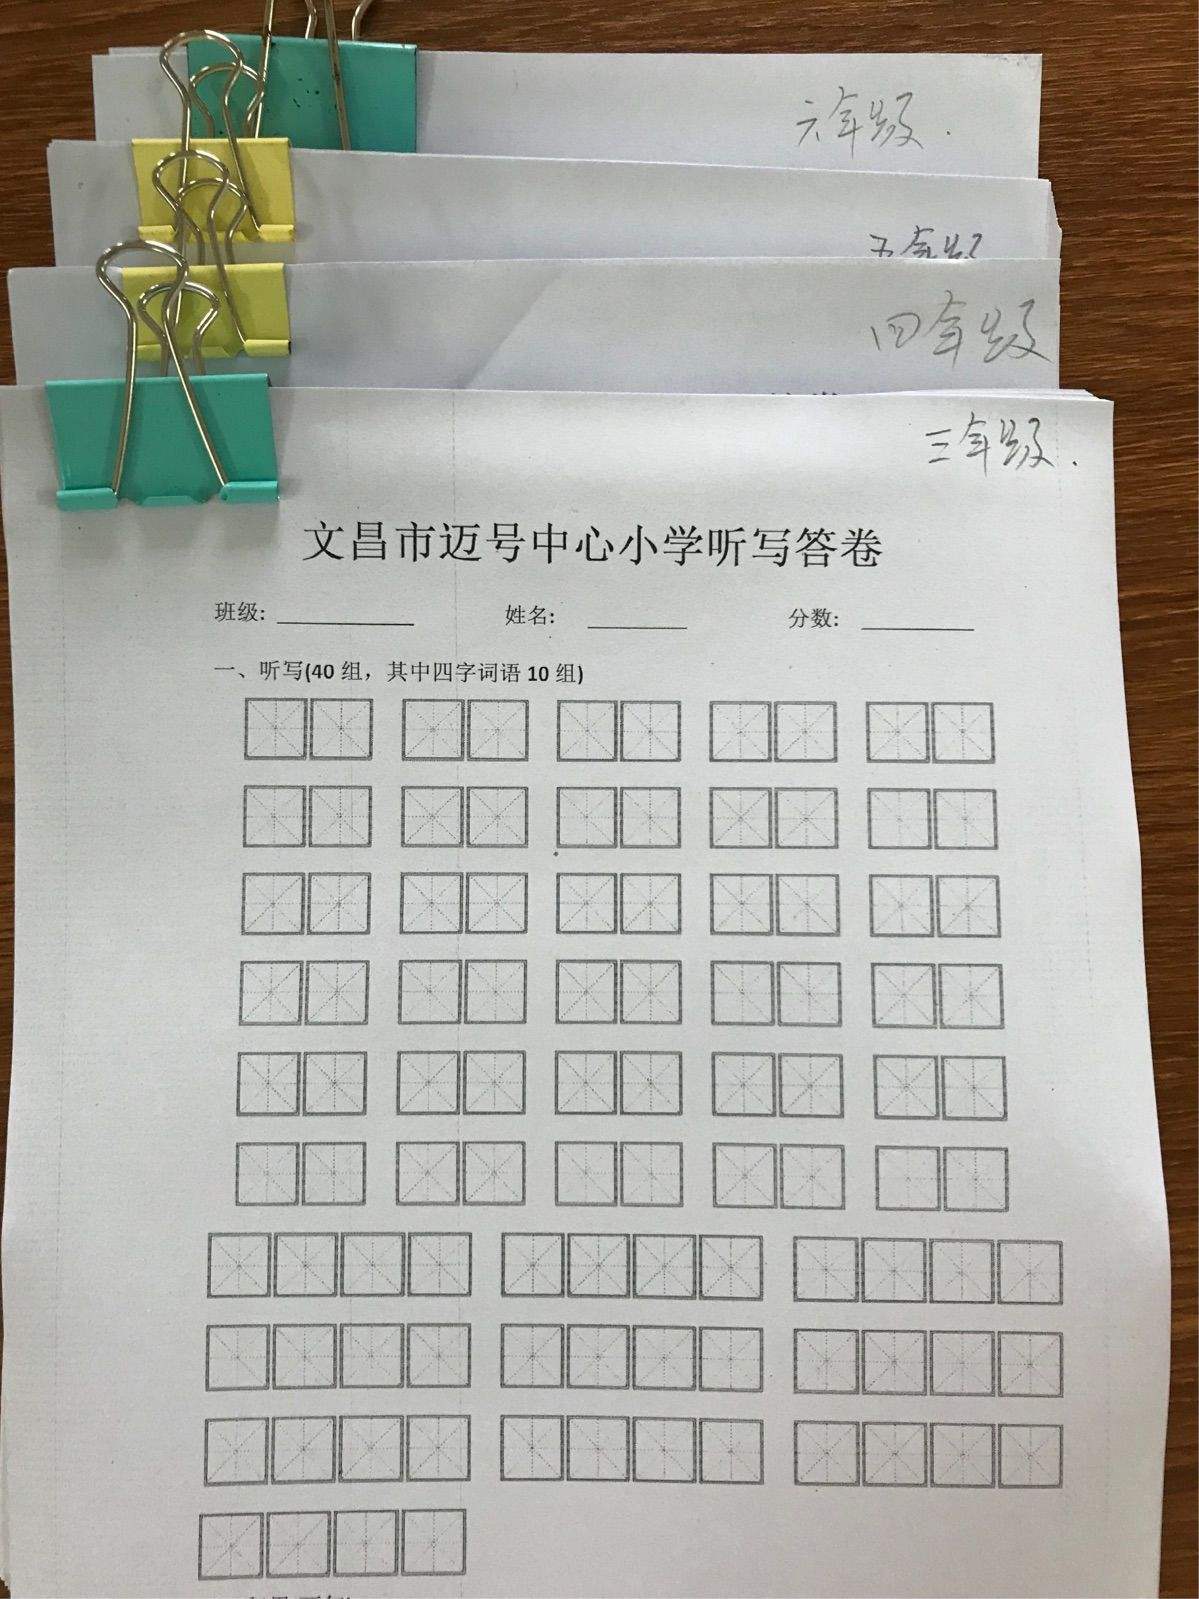 六年级.
五年级
四年级
三年级.
文昌市迈号中心小学听写答卷
班级: 姓名: 分数:
一、听写(40 组，其中四字词语 10 组)